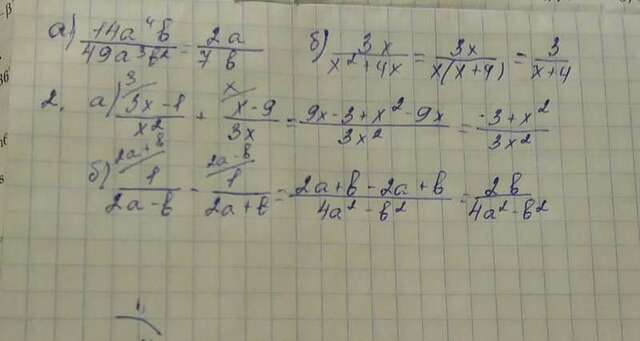 а) 14a⁴b/49a³b² = 2a/7b б) 3x/x²+4x = 3x/x(x+4) = 3/x+4
2. а) 3/ 3x-1/x² + x/ x-9/3x = 9x-3+x²-9x/3x² = -3+x²/3x²
б) 2a+b/ 1/2a-b - 2a-b/ 1/2a+b = 2a+b-2a+b/4a²-b² = 2b/4a²-b²